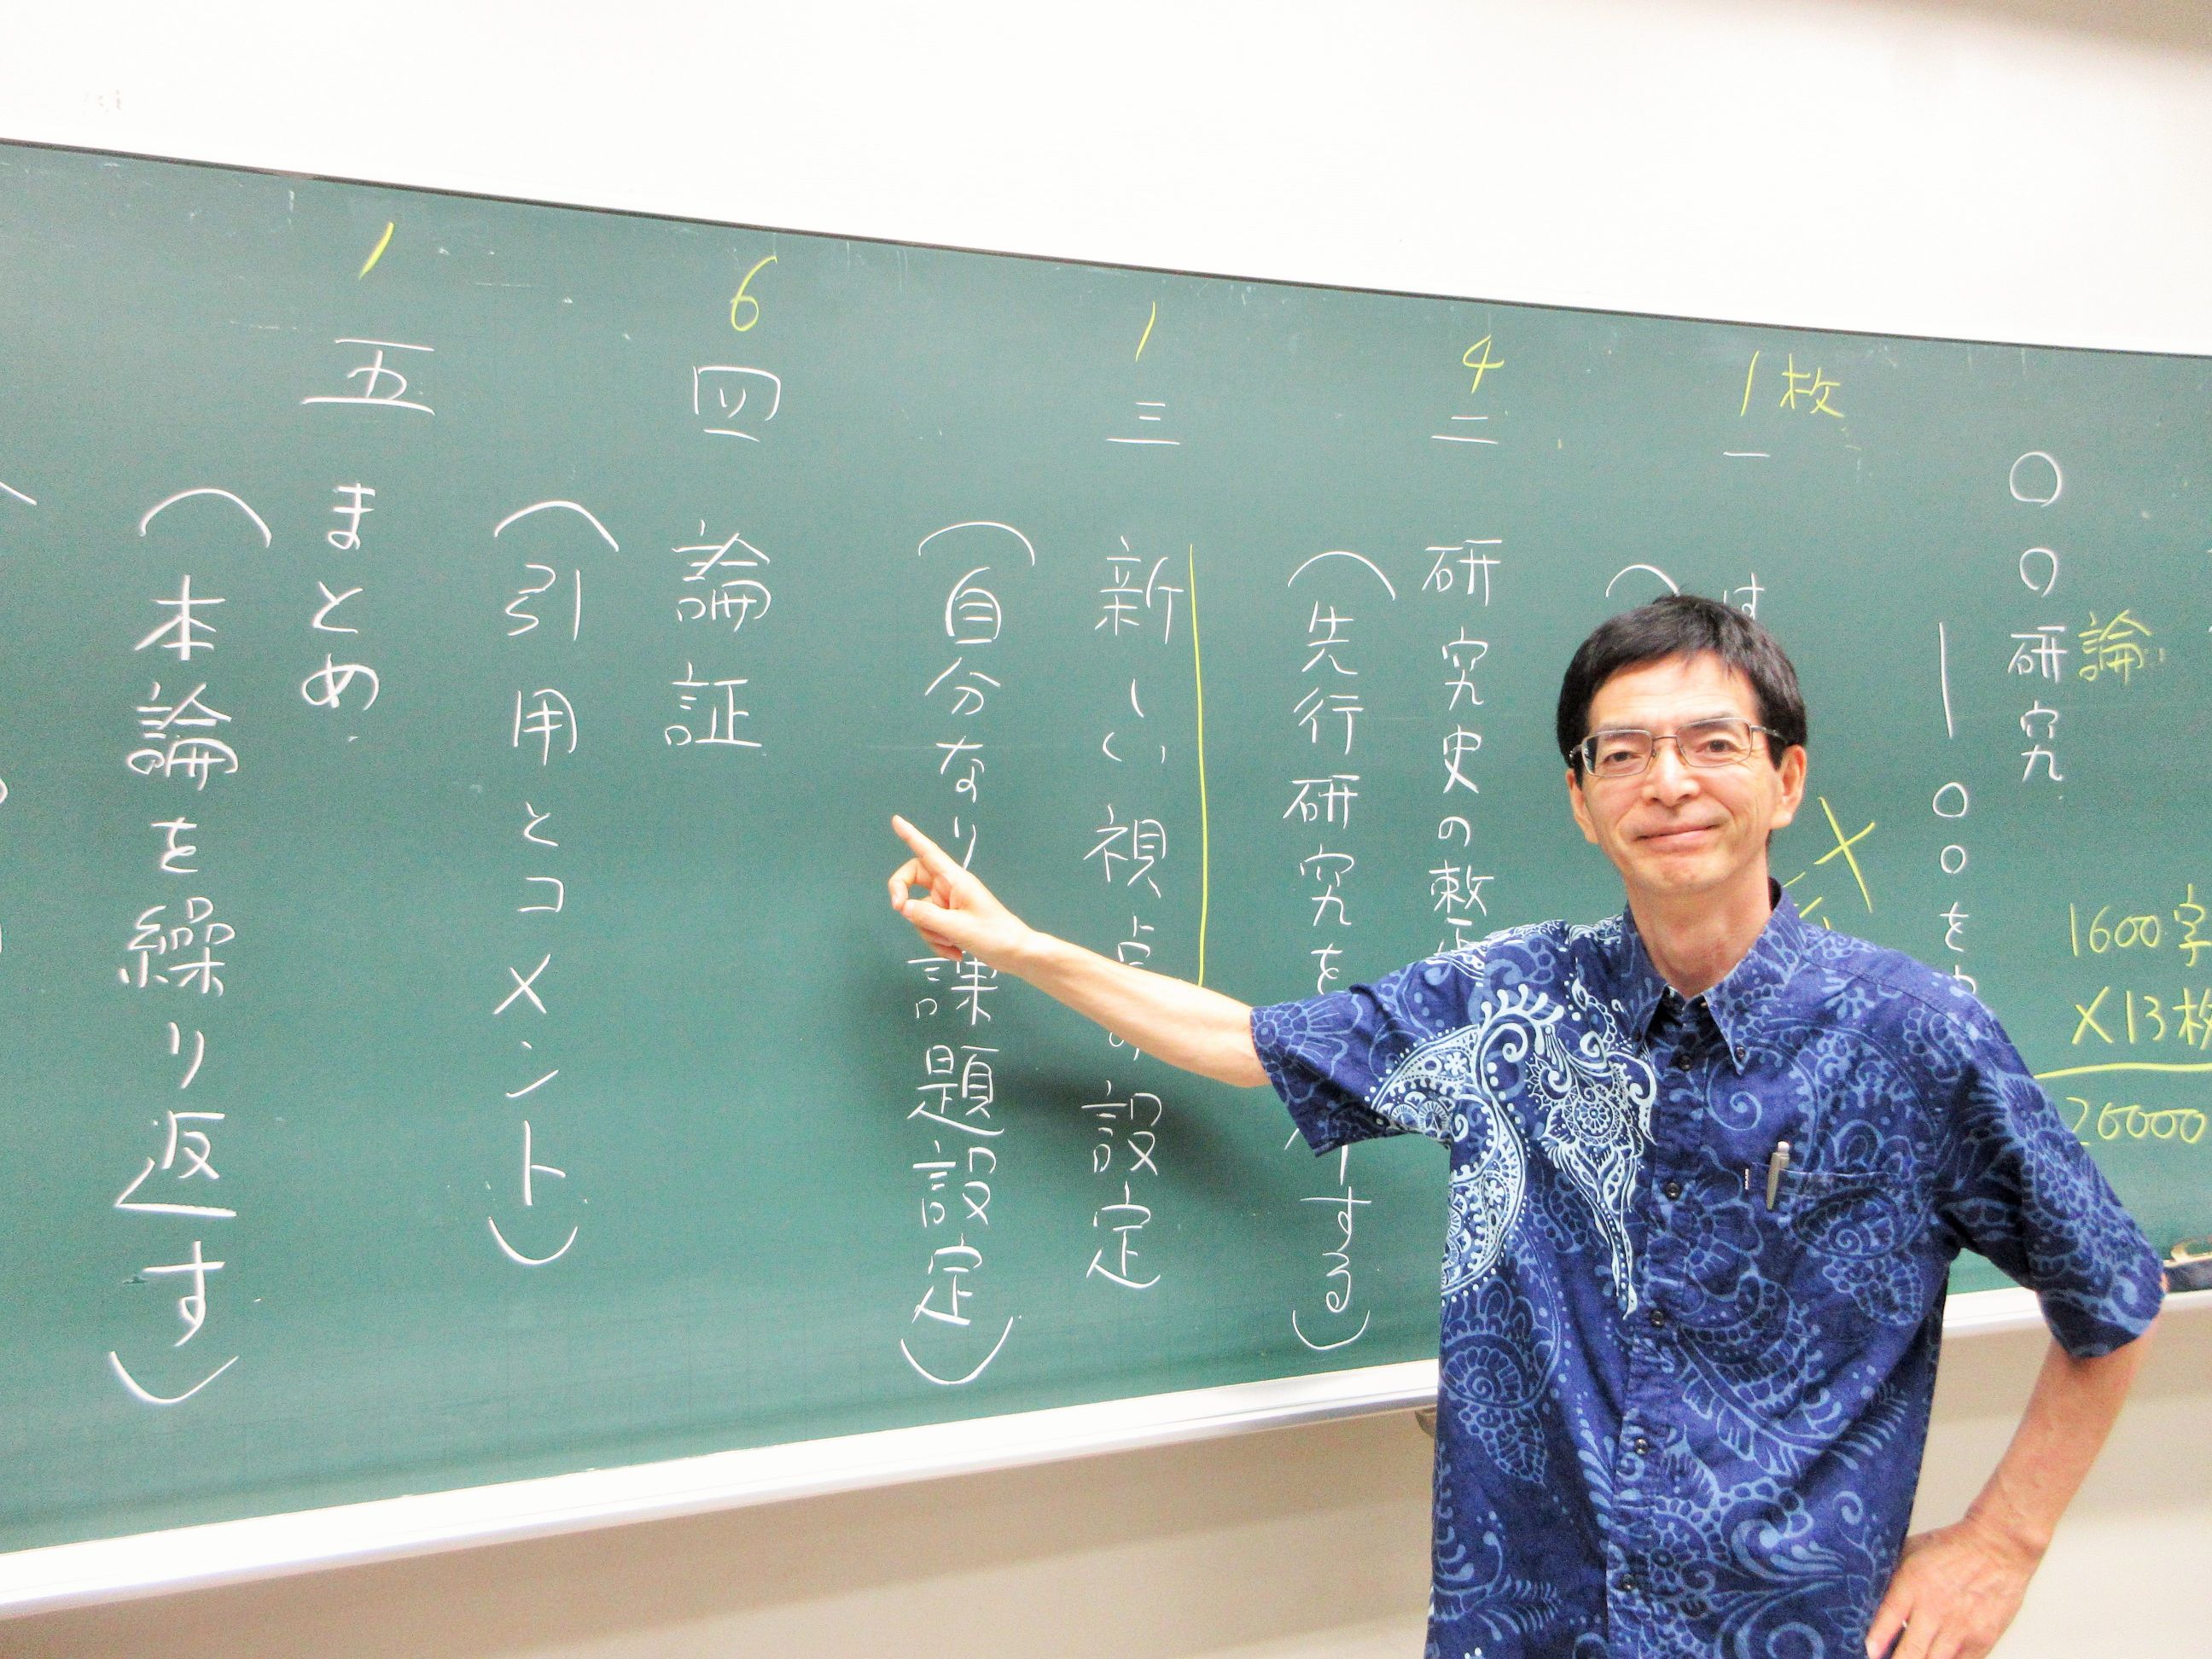 〇〇研究
論
1600字
×13枚
20000
一〇〇を
1枚
一 は
4
二 研究史の整
（先行研究を
する）
1
三 新しい視点の設定
（自分なり
課題設定）
6
四 論証
（引用とコメント）
1
五 まとめ
（本論を繰り返す）